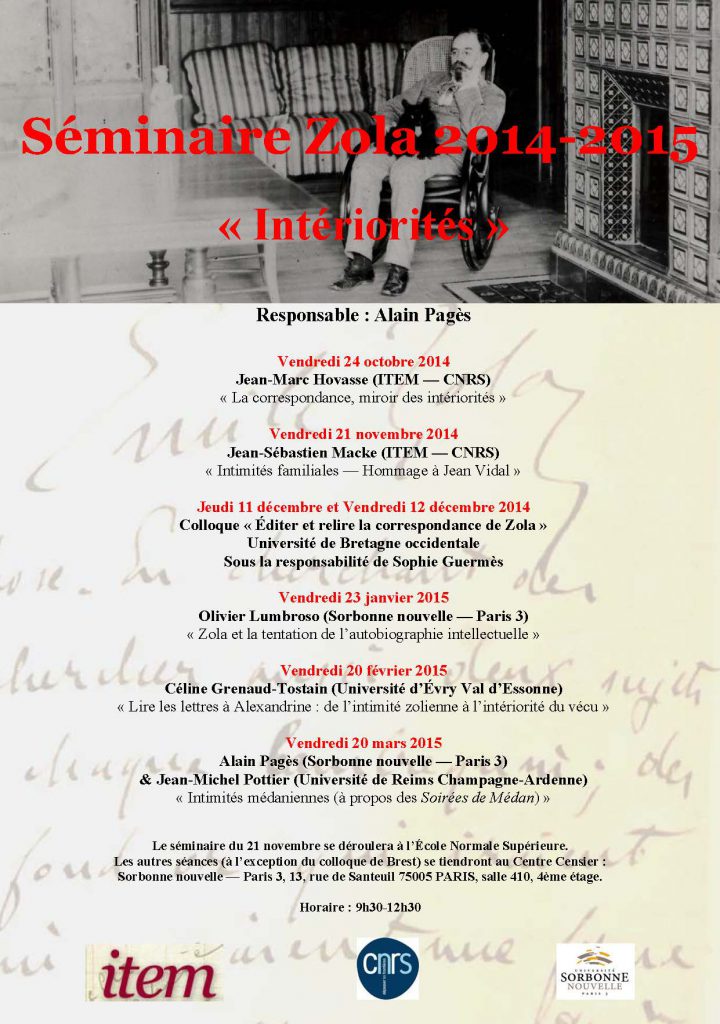 Séminaire Zola 2014-2015
« Intériorités »
Responsable : Alain Pagès
Vendredi 24 octobre 2014
Jean-Marc Hovasse (ITEM — CNRS)
« La correspondance, miroir des intériorités »
Vendredi 21 novembre 2014
Jean-Sébastien Macke (ITEM — CNRS)
« Intimités familiales — Hommage à Jean Vidal »
Jeudi 11 décembre et Vendredi 12 décembre 2014
Colloque « Éditer et relire la correspondance de Zola »
Université de Bretagne occidentale
Sous la responsabilité de Sophie Guermès
Vendredi 23 janvier 2015
Olivier Lumbroso (Sorbonne nouvelle — Paris 3)
« Zola et la tentation de l'autobiographie intellectuelle »
Vendredi 20 février 2015
Céline Grenaud-Tostain (Université d'Évry Val d'Essonne)
« Lire les lettres à Alexandrine : de l'intimité zolienne à l'intériorité du vécu »
Vendredi 20 mars 2015
Alain Pagès (Sorbonne nouvelle — Paris 3)
& Jean-Michel Pottier (Université de Reims Champagne-Ardenne)
« Intimités médaniennes (à propos des Soirées de Médan) »
Le séminaire du 21 novembre se déroulera à l'École Normale Supérieure.
Les autres séances (à l'exception du colloque de Brest) se tiendront au Centre Censier :
Sorbonne nouvelle — Paris 3, 13, rue de Santeuil 75005 PARIS, salle 410, 4ème étage.
Horaire : 9h30-12h30
item
cnrs
UNIVERSITÉ
SORBONNE
NOUVELLE
PARIS 3